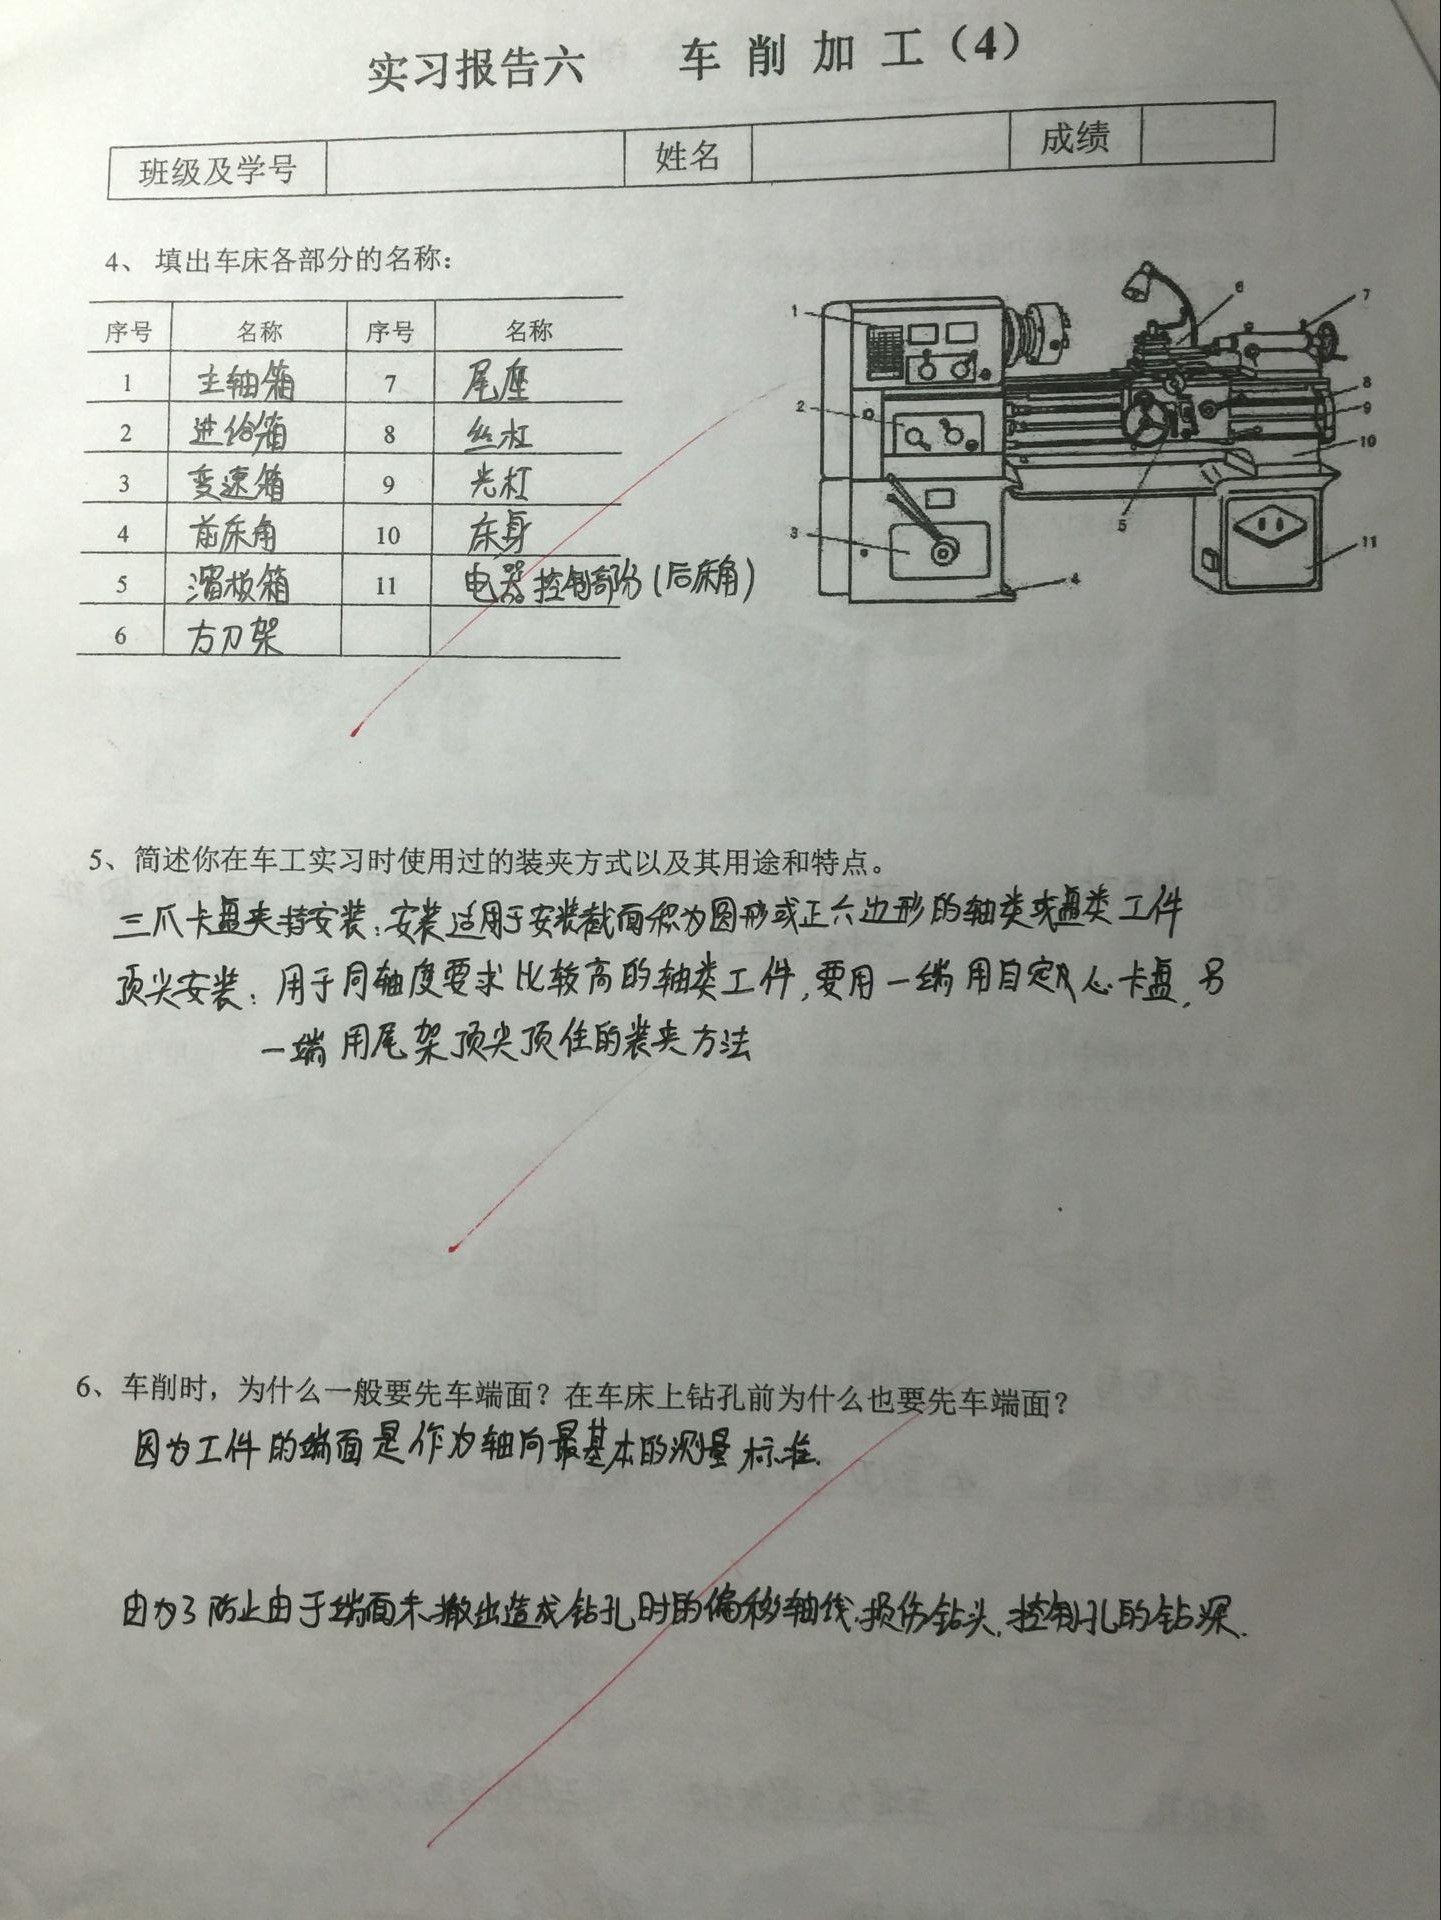 实习报告六 车削加工（4）
班级及学号 姓名 成绩
4、 填出车床各部分的名称：
序号 名称 序号 名称
1 主轴箱 7 尾座
2 进给箱 8 丝杠
3 变速箱 9 光杠
4 前床角 10 床身
5 溜板箱 11 电器控制部份(后床角)
6 方刀架
1
2
3
4
5
6
7
8
9
10
11
5、简述你在车工实习时使用过的装夹方式以及其用途和特点。
三爪卡盘夹持安装：安装适用于安装截面积为圆形或正六边形的轴类或盘类工件
顶尖安装：用于同轴度要求比较高的轴类工件,要用一端用自定心卡盘,另
一端用尾架顶尖顶住的装夹方法
6、车削时，为什么一般要先车端面？在车床上钻孔前为什么也要先车端面？
因为工件的端面是作为轴向最基本的测量标准.
由为了防止由于端面未 出造成钻孔时的偏移轴线.损伤钻头,控制孔的钻深.